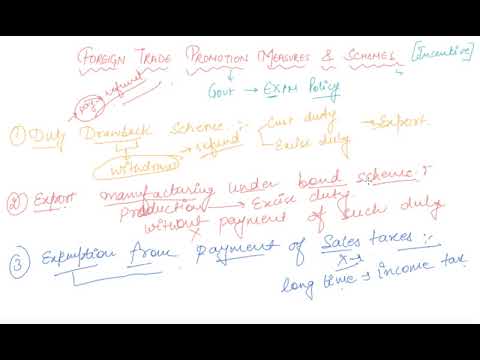 FOREIGN TRADE PROMOTION MEASURES & SCHEMES [Incentive]
pay → refund
Govt → EXIM Policy
① Duty Drawback Scheme :- Cust duty → Export
withdraw → refund Excise duty
② Export manufacturing under bond scheme :-
Production → Excise duty
without payment of such duty
X
③ Exemption from payment of Sales taxes :-
X →
long time → income tax